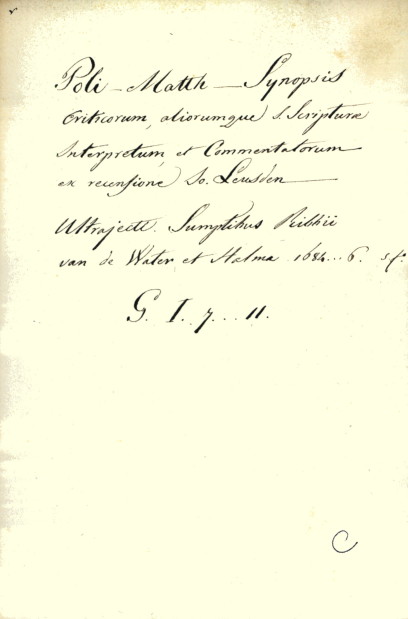 Poli - Matth - Synopsis
Criticorum, aliorumque S. Scripturæ
Interpretum, et Commentatorum
ex recensione Jo. Leusden
Ultrajecti. Sumptibus Ribbii
van de Water et Halma 1684...6. 5 f.
G. I. 7... 11.
C